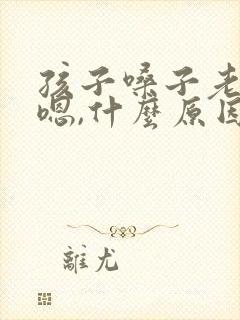 孩子嗓子老
嗯,什麼原因
離尤